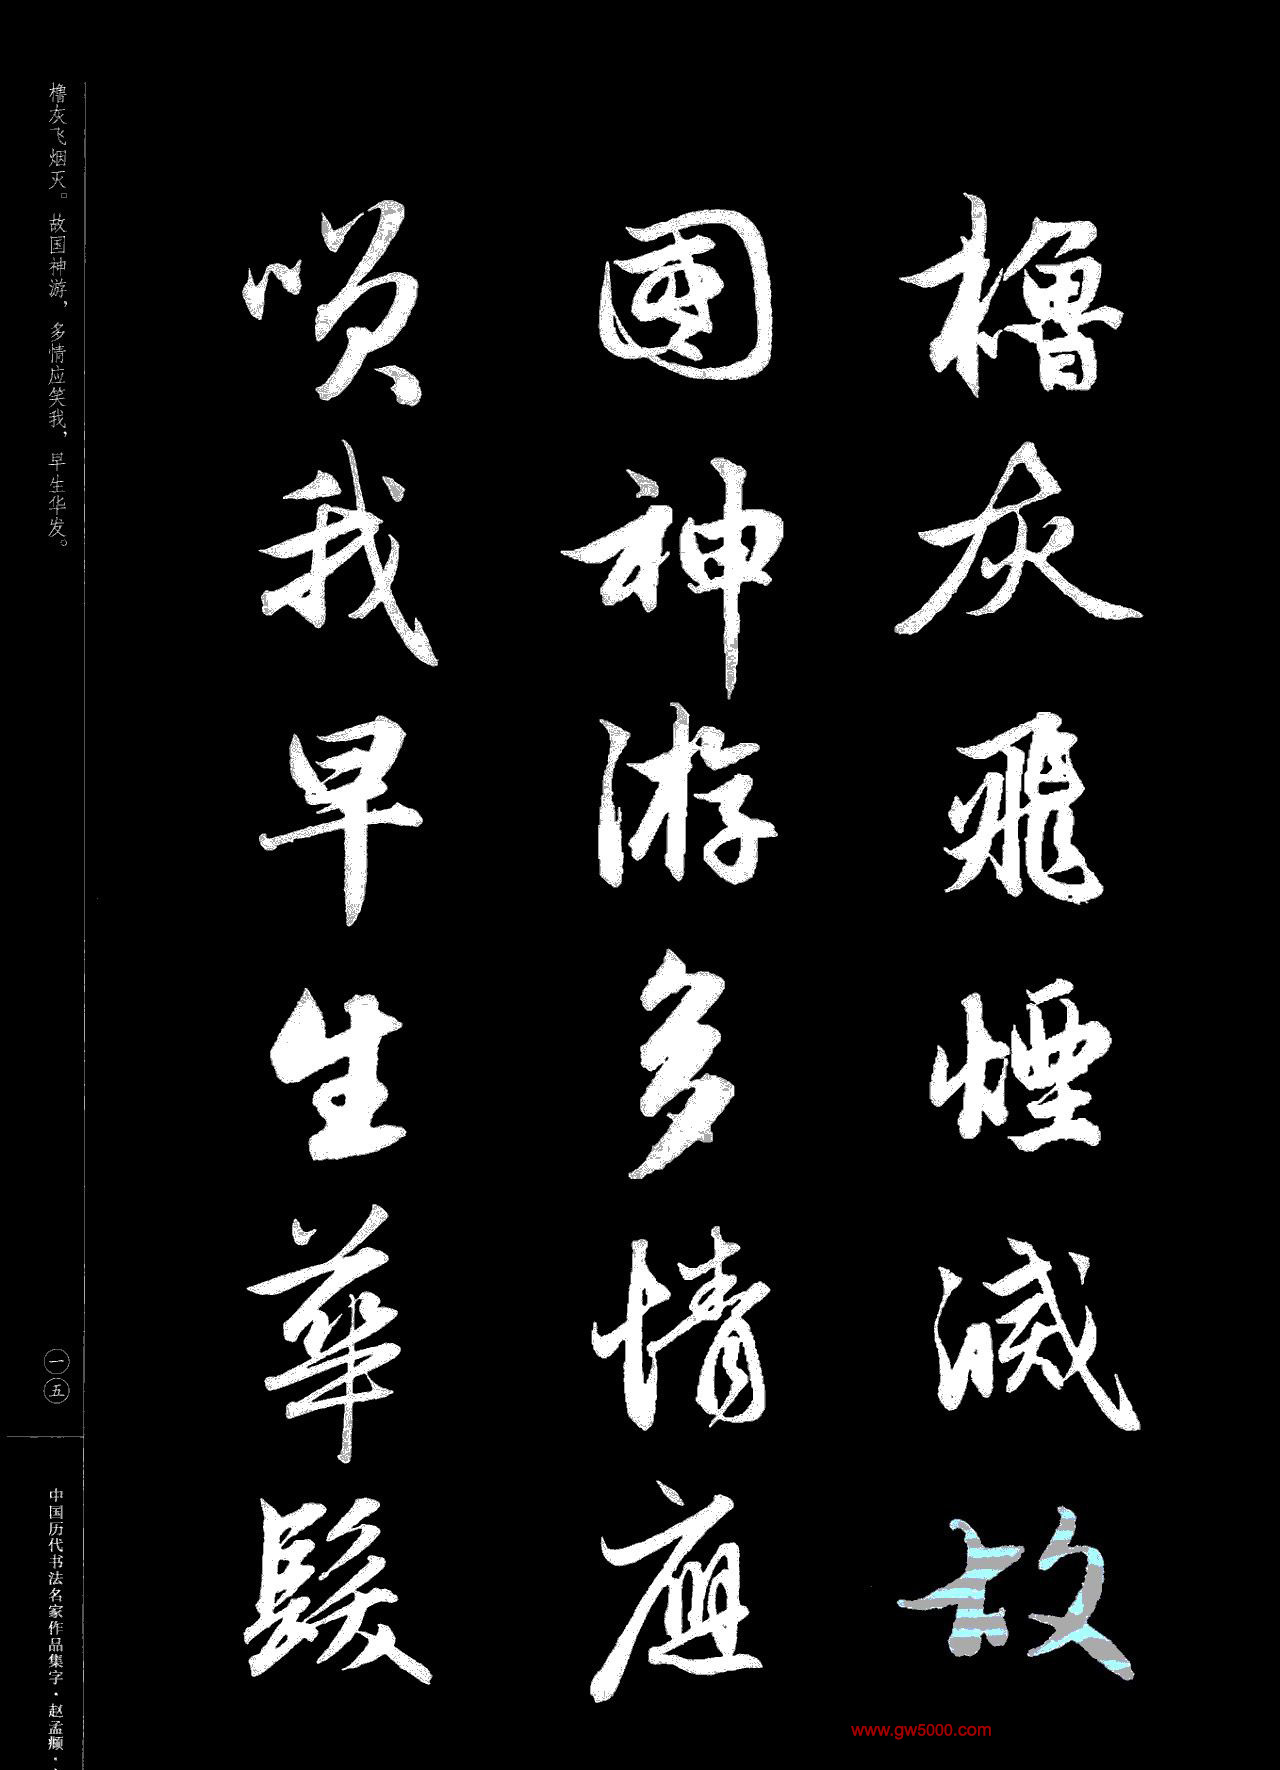 櫓灰飛煙滅故
國神游多情應
唉我早生華髮
櫓灰飞烟灭。故国神游，多情应笑我，早生华发。
一五
中国历代书法名家作品集字·赵孟頫·
www.gw5000.com